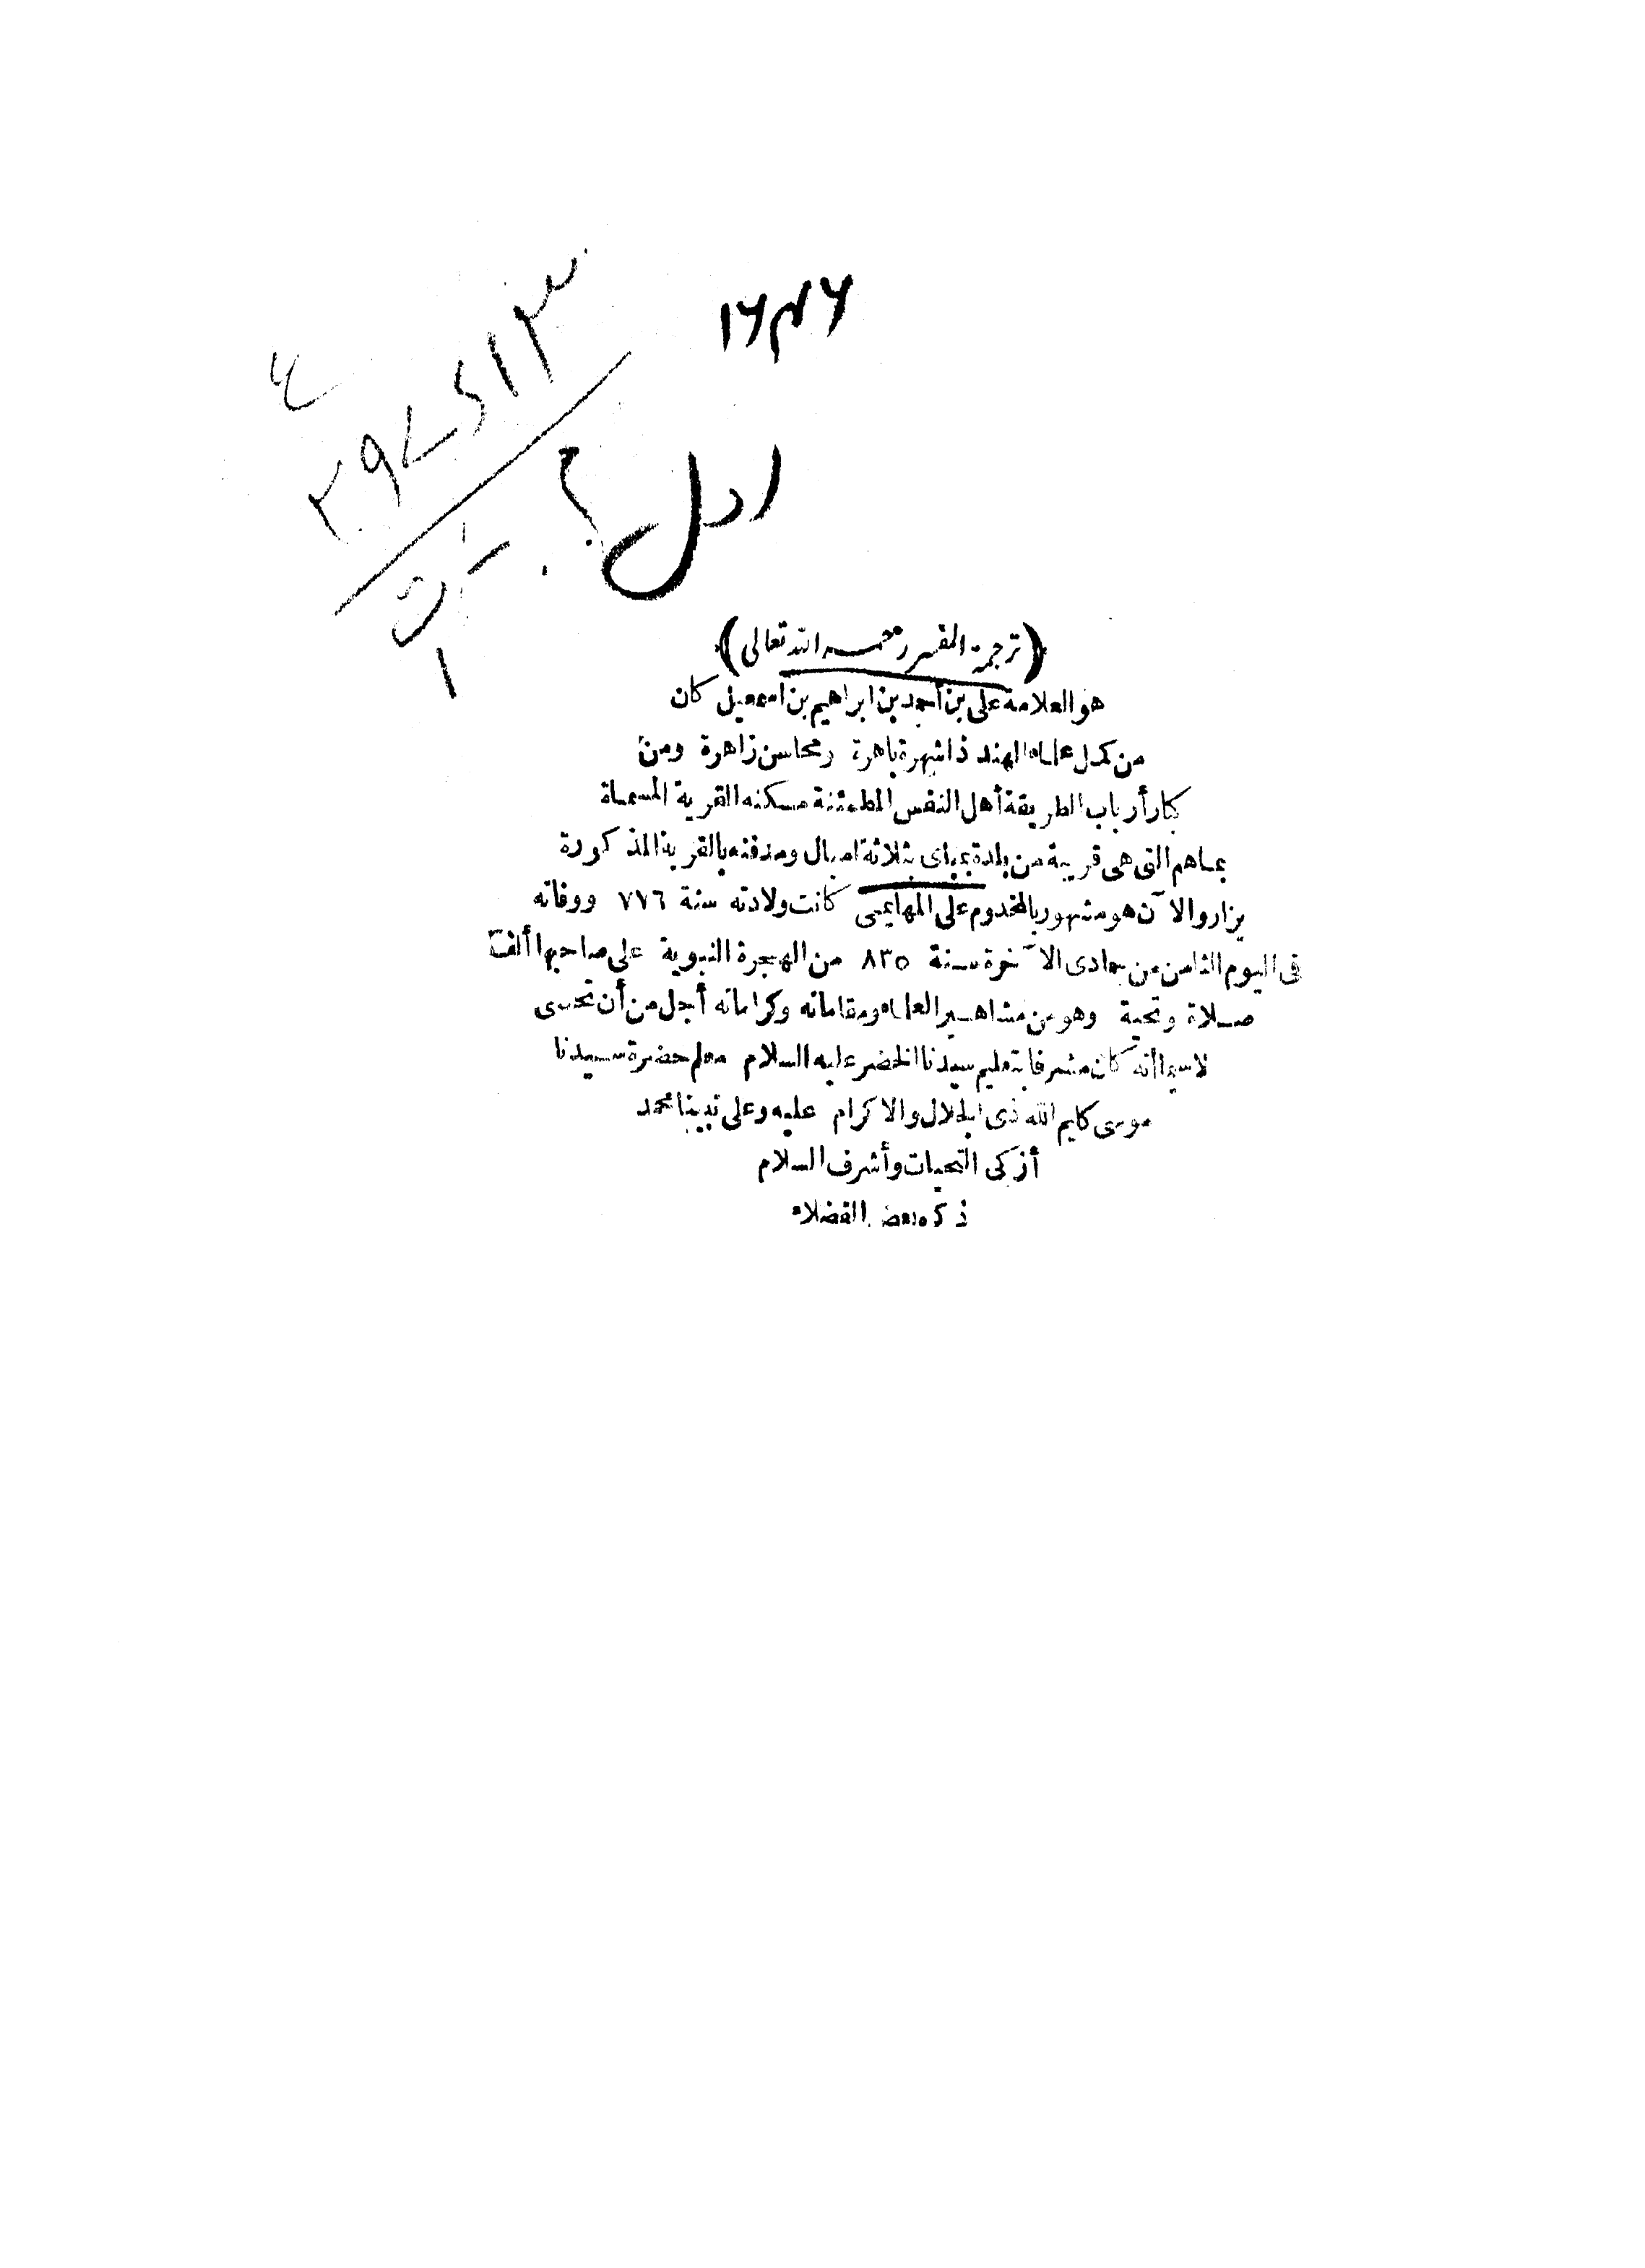 ۱۶۴۶
(ترجمة المفسر رحمه الله تعالى)
هو العلامة على بن أحمد بن ابراهيم بن اسمعيل كان
من كمل علماء الهند ذا شهرة باهرة ومحاسن زاهرة ومن
كبار أرباب الطريقة أهل النفس المطمئنة مسكنه القرية المسماة
بماهم التى هى قريبة من بلدة بمباى بثلاثة اميال ومدفنه بالقرية المذكورة
يزار والآن هو مشهور بالمخدوم على المهايمى كانت ولادته سنة ٧٧٦ ووفاته
فى اليوم الثامن من جمادى الآخرة سنة ٨٣٥ من الهجرة النبوية على صاحبها ألف
صلاة وتحية وهو من مشاهير العلماء ومقاماته وكراماته أجل من أن تحصى
لاسيما أنه كان مشرفا بتعليم سيدنا الخضر عليه السلام معلم حضرة سيدنا
موسى كليم الله ذى الجلال والاكرام عليه وعلى نبينا محمد
أزكى التحيات وأشرف السلام
ذكره بعض الفضلاء